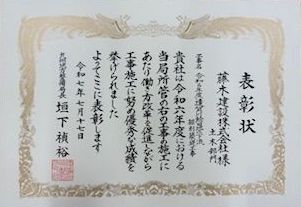 表彰状
藤木建設株式会社様
土木部門
工事名
貴社は令和六年度における
当局所管の右の工事の施工に
あたり働き方改革を促進しながら
工事施工に努め優秀な成績を
挙げられました
よってここに表彰します
令和七年七月十七日
九州地方整備局長
垣下禎裕